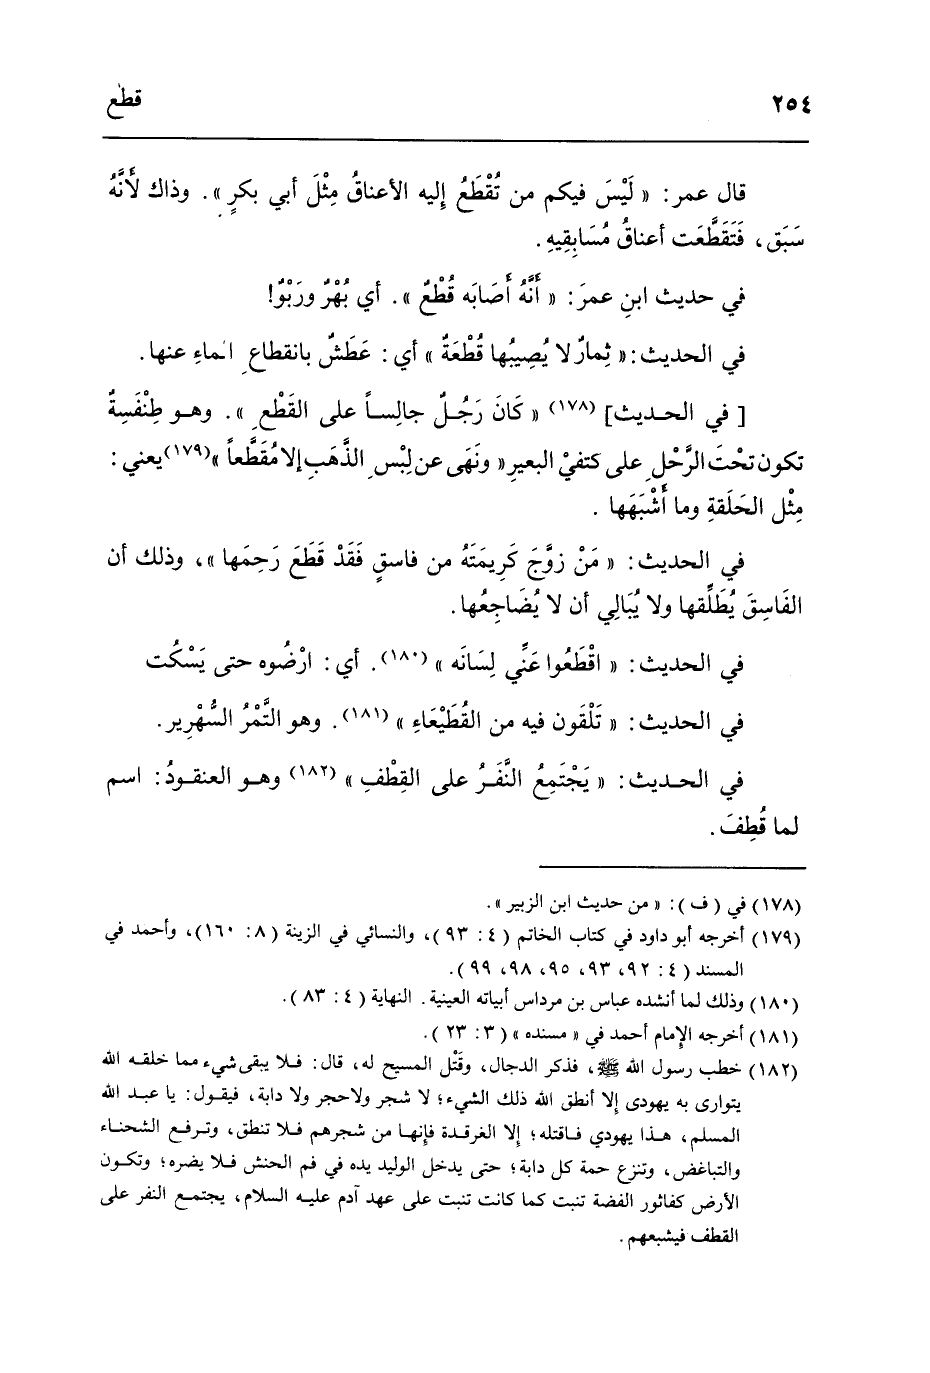 ٢٥٤
قطع
قال عمر: « لَيْسَ فيكم من تُقْطَعُ إليه الأعناقُ مِثْلَ أبي بكرٍ ». وذاك لأَنَّهُ
سَبَق، فَتَقَطَّعَت أعناقُ مُسَابِقِيهِ.
في حديث ابنِ عمرَ: « أَنَّهُ أَصَابَه قُطْعٌ ». أي بُهْرٌ ورَبْوٌ!
في الحديث:« ثِمارٌ لا يُصِيبُها قُطْعَةٌ » أي: عَطَشٌ بانقطاعِ الماءِ عنها.
[في الحديث] (١٧٨) « كَانَ رَجُلٌ جالِساً على القَطْعِ ». وهو طِنْفَسِةٌ
تكون تحْتَ الرَّحْلِ على كتفيْ البعيرِ « ونَهَى عن لِبْسِ الذَّهَبِ إلا مُقَطَّعاً »(١٧٩) يعني:
مِثْل الحَلَقةِ وما أَشْبَهَها .
في الحديث: « مَنْ زوَّجَ كَرِيمَتَهُ من فاسقٍ فَقَدْ قَطَعَ رَحِمَها »، وذلك أن
الفَاسِقَ يُطَلِّقها ولا يُبَالِي أن لا يُضَاجِعُها.
في الحديث: « اقْطَعُوا عَنِّي لِسَانَه » (١٨٠). أي: ارْضُوه حتى يَسْكُت
في الحديث: « تَلْقَون فيه من القُطَيْعَاءِ » (١٨١). وهو التَّمْرُ السُّهْرِير.
في الحديث: « يَجْتَمِعُ النَّفَرُ على القِطْفِ » (١٨٢) وهو العنقودُ: اسم
لما قُطِفَ.
(١٧٨) في ( ف ): « من حديث ابن الزبير ».
(١٧٩) أخرجه أبو داود في كتاب الخاتم ( ٤: ٩٣ )، والنسائي في الزينة ( ٨: ١٦٠)، وأحمد في
المسند ( ٤: ٩٢، ٩٣، ٩٥، ٩٨، ٩٩ ).
(١٨٠) وذلك لما أنشده عباس بن مرداس أبياته العينية. النهاية ( ٤: ٨٣ ).
(١٨١) أخرجه الإمام أحمد في « مسنده » ( ٣: ٢٣ ).
(١٨٢) خطب رسول الله ﷺ، فذكر الدجال، وقَتْل المسيح له، قال: فلا يبقى شيء مما خلقه الله
يتوارى به يهودى إلا أنطق الله ذلك الشيء؛ لا شجر ولاحجر ولا دابة، فيقول: يا عبد الله
المسلم، هذا يهودي فاقتله؛ إلا الغرقدة فإنها من شجرهم فلا تنطق، وترفع الشحناء
والتباغض، وتنزع حمة كل دابة؛ حتى يدخل الوليد يده في فم الحنش فلا يضره؛ وتكون
الأرض كفاثور الفضة تنبت كما كانت تنبت على عهد آدم عليه السلام، يجتمع النفر على
القطف فيشبعهم.